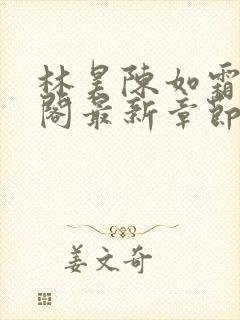 林昊陳如霜
閣最新章節
姜文奇